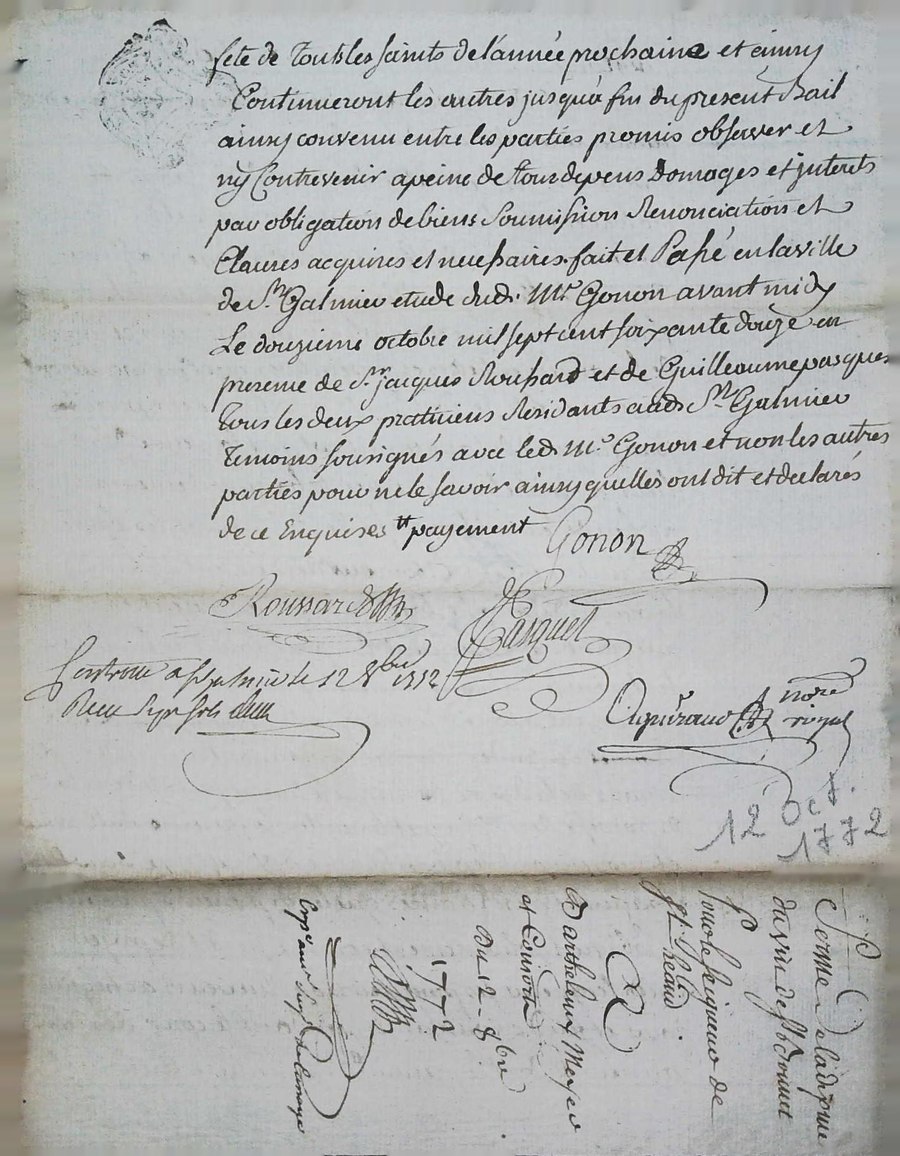 fete de Tout les saints de l'année prochaine et ainsy
Continueront les autres jusqu'a fin du present Bail
ainsy convenu entre les parties promis observer et
ny Contrevenir a peine de tous depens Domages et jnterets
par obligation de biens Soumission Renonciation et
Clauses acquises et necessaires. fait et Passé en la ville
de St Galmier etude dud. Mr. Gonon avant midy
Le douzieme octobre mil sept cent soixante douze en
presence de Sr. jacques Roussard et de Guilleaume pasquet
tous les deux praticiens Residants aud. St Galmier
Temoins sousignés avec led. Mr. Gonon et non les autres
parties pour ne le savoir ainsy quelles ont dit et declarés
de ce Enquises tt payement Gonon
Roussard
Pasquet
a St Galmier le 12 8bre 1772
Reçu sols
nore
royal
12 Oct.
1772
Ferme de la dixme
du vin de St bonnet
P
pour le seigneur de
St. Priest
C
Barthelemy Mercier
et Consorts
Du 12 - 8bre
1772